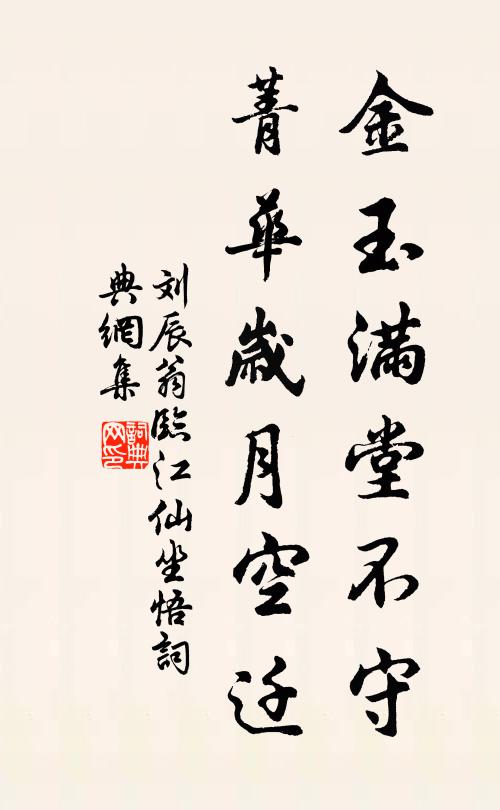 金玉满堂不守
菁華歲月空迁
刘辰翁臨江仙坐悟詞
典網集
詞典
网印